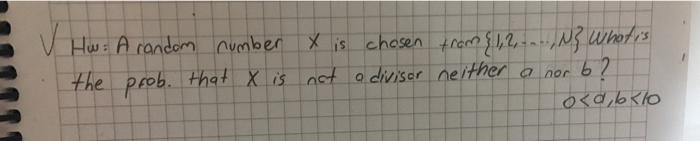 √ Hw: A random number X is chosen from {1,2,...,N} What is
the prob. that X is not a divisor neither a nor b?
0<a,b<10